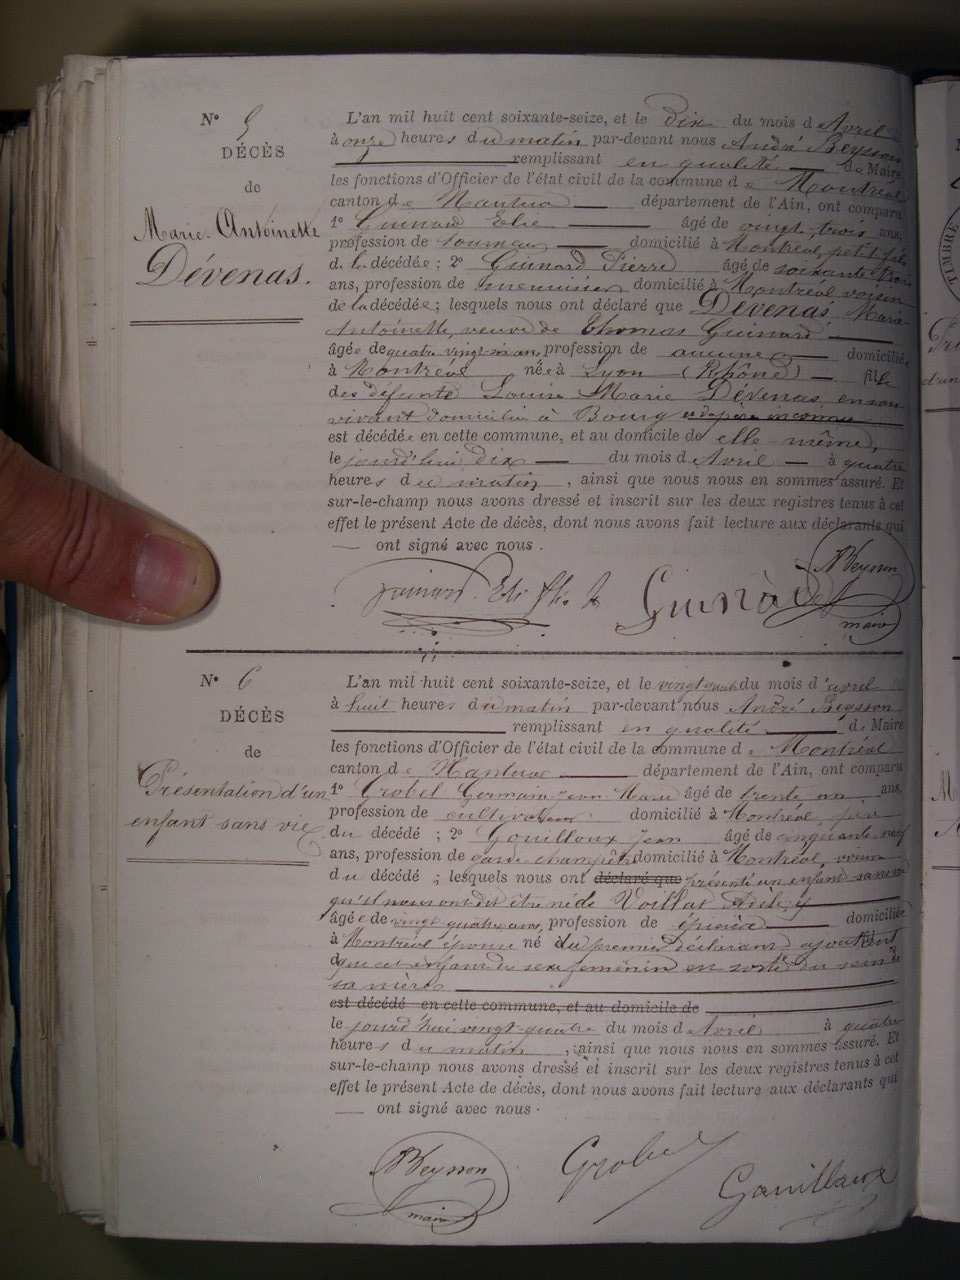 N° 5
DÉCÈS
de
Marie-Antoinette
Dévenas.
L'an mil huit cent soixante-seize, et le Dix du mois d Avril
à onze heures du matin par-devant nous André Beysson
remplissant en qualité de Maire
les fonctions d'Officier de l'état civil de la commune de Montréal
canton de Nantua département de l'Ain, ont comparu
1° Guinard Elie âgé de vingt-trois ans,
profession de domicilié à Montréal, petit fils
de la décédée ; 2° Guinard Pierre âgé de soixante trois
ans, profession de menuisier domicilié à Montréal voisin
de la décédée ; lesquels nous ont déclaré que Dévenas Marie
Antoinette, veuve de Thomas Guinard
âgée de quatre vingt ans, profession de aucune domicilié
à Montréal née à Lyon (Rhône) fille
des défunts Louise Marie Dévenas, en son
vivant domiciliée à Bourg et de père inconnu
est décédée en cette commune, et au domicile de elle même,
le jourd'hui dix du mois d Avril à quatre
heures du matin, ainsi que nous nous en sommes assuré. Et
sur-le-champ nous avons dressé et inscrit sur les deux registres tenus à cet
effet le présent Acte de décès, dont nous avons fait lecture aux déclarants qui
ont signé avec nous.
Guinard Elie Guinard ABeysson
maire
N° 6
DÉCÈS
de
Présentation d'un
enfant sans vie
L'an mil huit cent soixante-seize, et le vingt quatre du mois d'avril
à huit heures du matin par-devant nous André Beysson
remplissant en qualité de Maire
les fonctions d'Officier de l'état civil de la commune de Montréal
canton de Nantua département de l'Ain, ont comparu
1° Grobel Germain Jean Marie âgé de trente un ans,
profession de cultivateur domicilié à Montréal, père
du décédé ; 2° Gouilloux Jean âgé de cinquante neuf
ans, profession de garde champêtre domicilié à Montréal, voisin
du décédé ; lesquels nous ont déclaré que présenté un enfant sans vie
qu'ils nous ont dit être né de Voillat
âgée de vingt quatre ans, profession de épicière domiciliée
à Montréal épouse né du premier déclarant ajoutant
que cet enfant du sexe féminin est sorti du sein de
sa mère
est décédé en cette commune, et au domicile de
le jourd'hui vingt-quatre du mois d Avril à quatre
heures du matin, ainsi que nous nous en sommes assuré. Et
sur-le-champ nous avons dressé et inscrit sur les deux registres tenus à cet
effet le présent Acte de décès, dont nous avons fait lecture aux déclarants qui
ont signé avec nous.
ABeysson Grobel Gouilloux
maire
TIMBRE